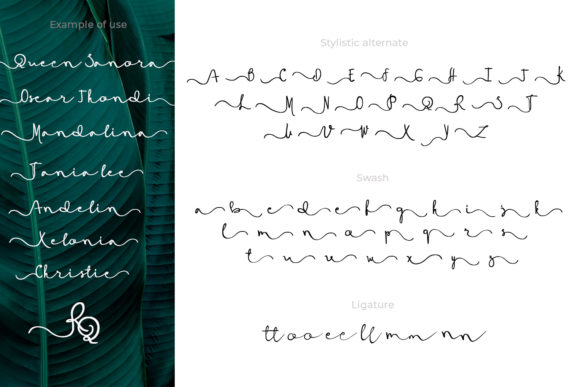 Example of use
Queen Sanora
Oscar Thondi
Mandalina
Tania lee
Andelin
Xelonia
Christie
RQ
Stylistic alternate
A B C D E F G H I J K
L M N O P Q R S T
U V W X Y Z
Swash
a b c d e f g h i j k
l m n o p q r s
t u v w x y z
Ligature
tt oo ee ll mm nn